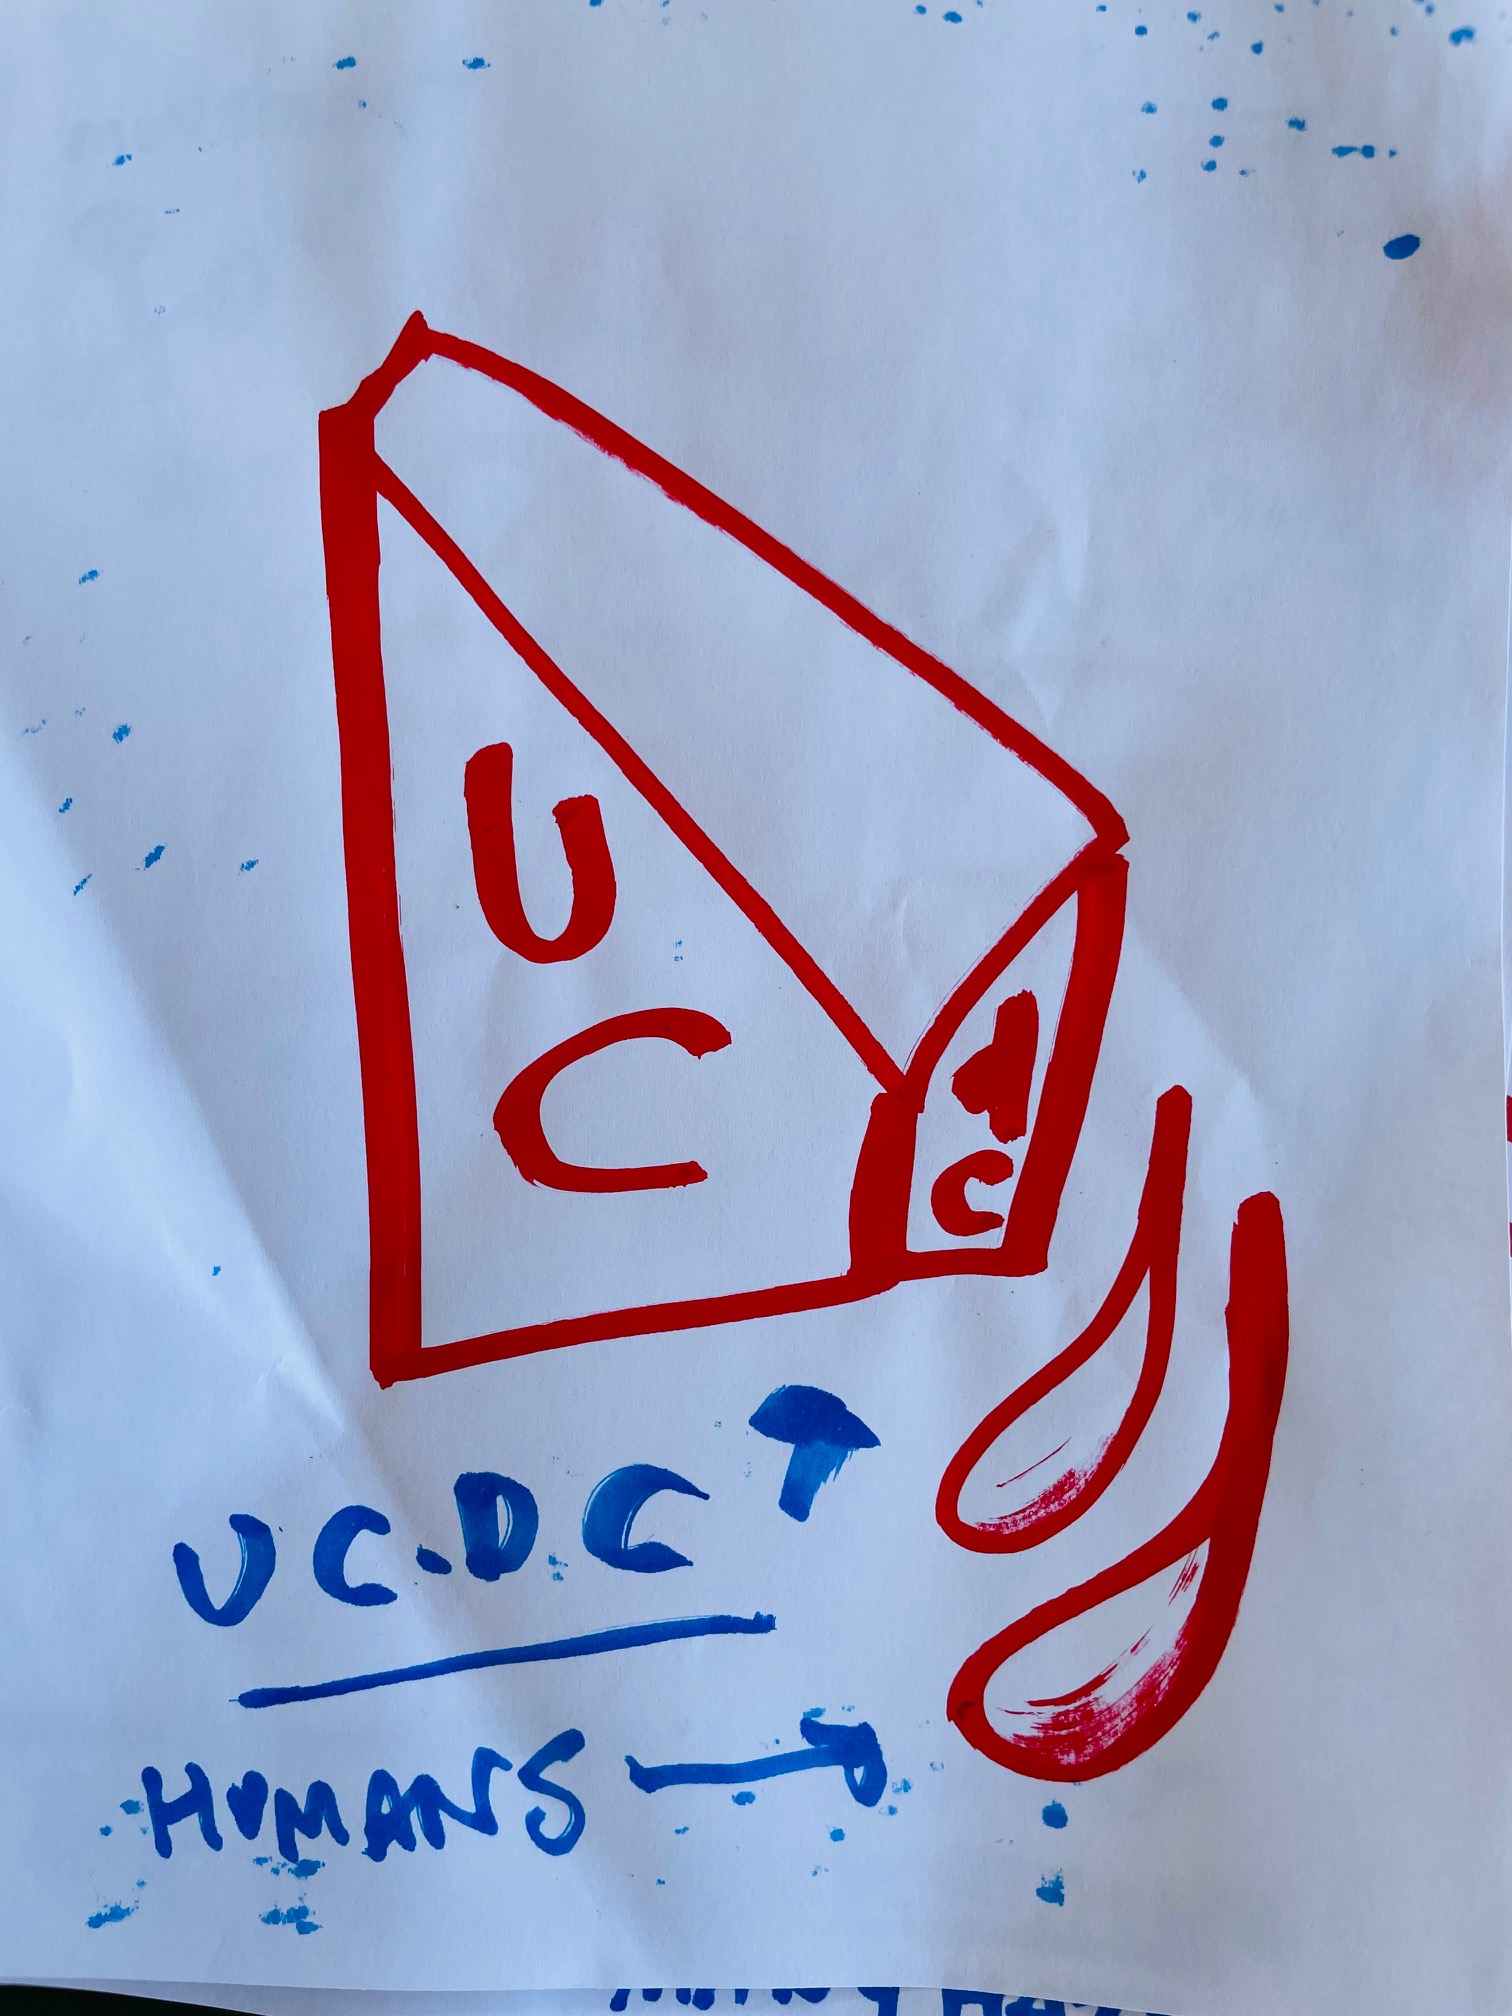 U
C
C
UC.DC
HUMANS